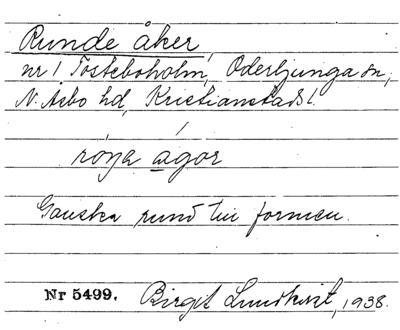 Runde åker,
nr 1 Tosteboholm, Oderljunga sn,
N. Åsbo hd, Kristianstads l.
Ganska rund till formen.
Nr 5499. Birgit Lundkvist, 1938.